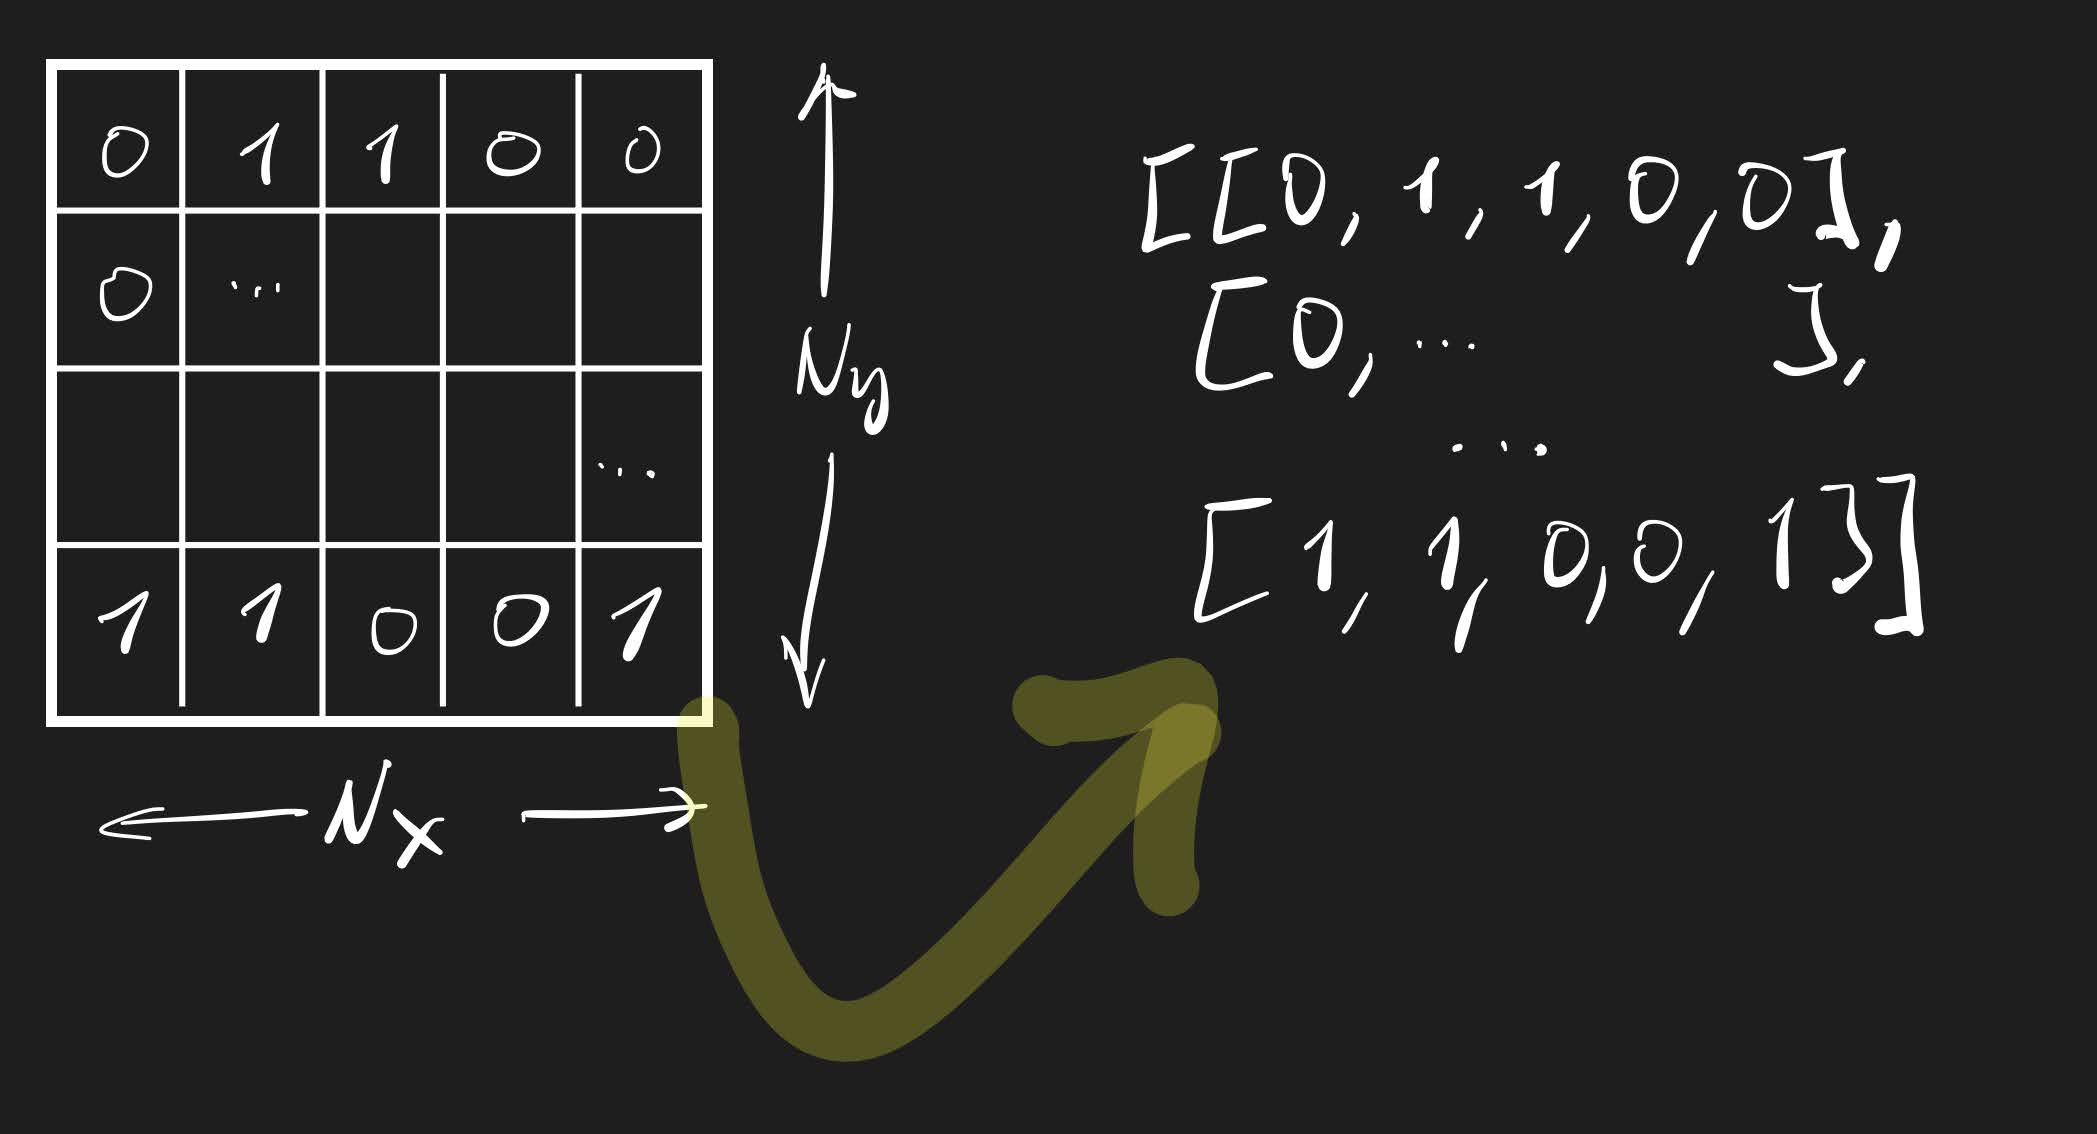 0 1 1 0 0
0 ...
...
1 1 0 0 1
Ny
Nx
[[0, 1, 1, 0, 0],
[0, ... ],
...
[1, 1, 0, 0, 1]]